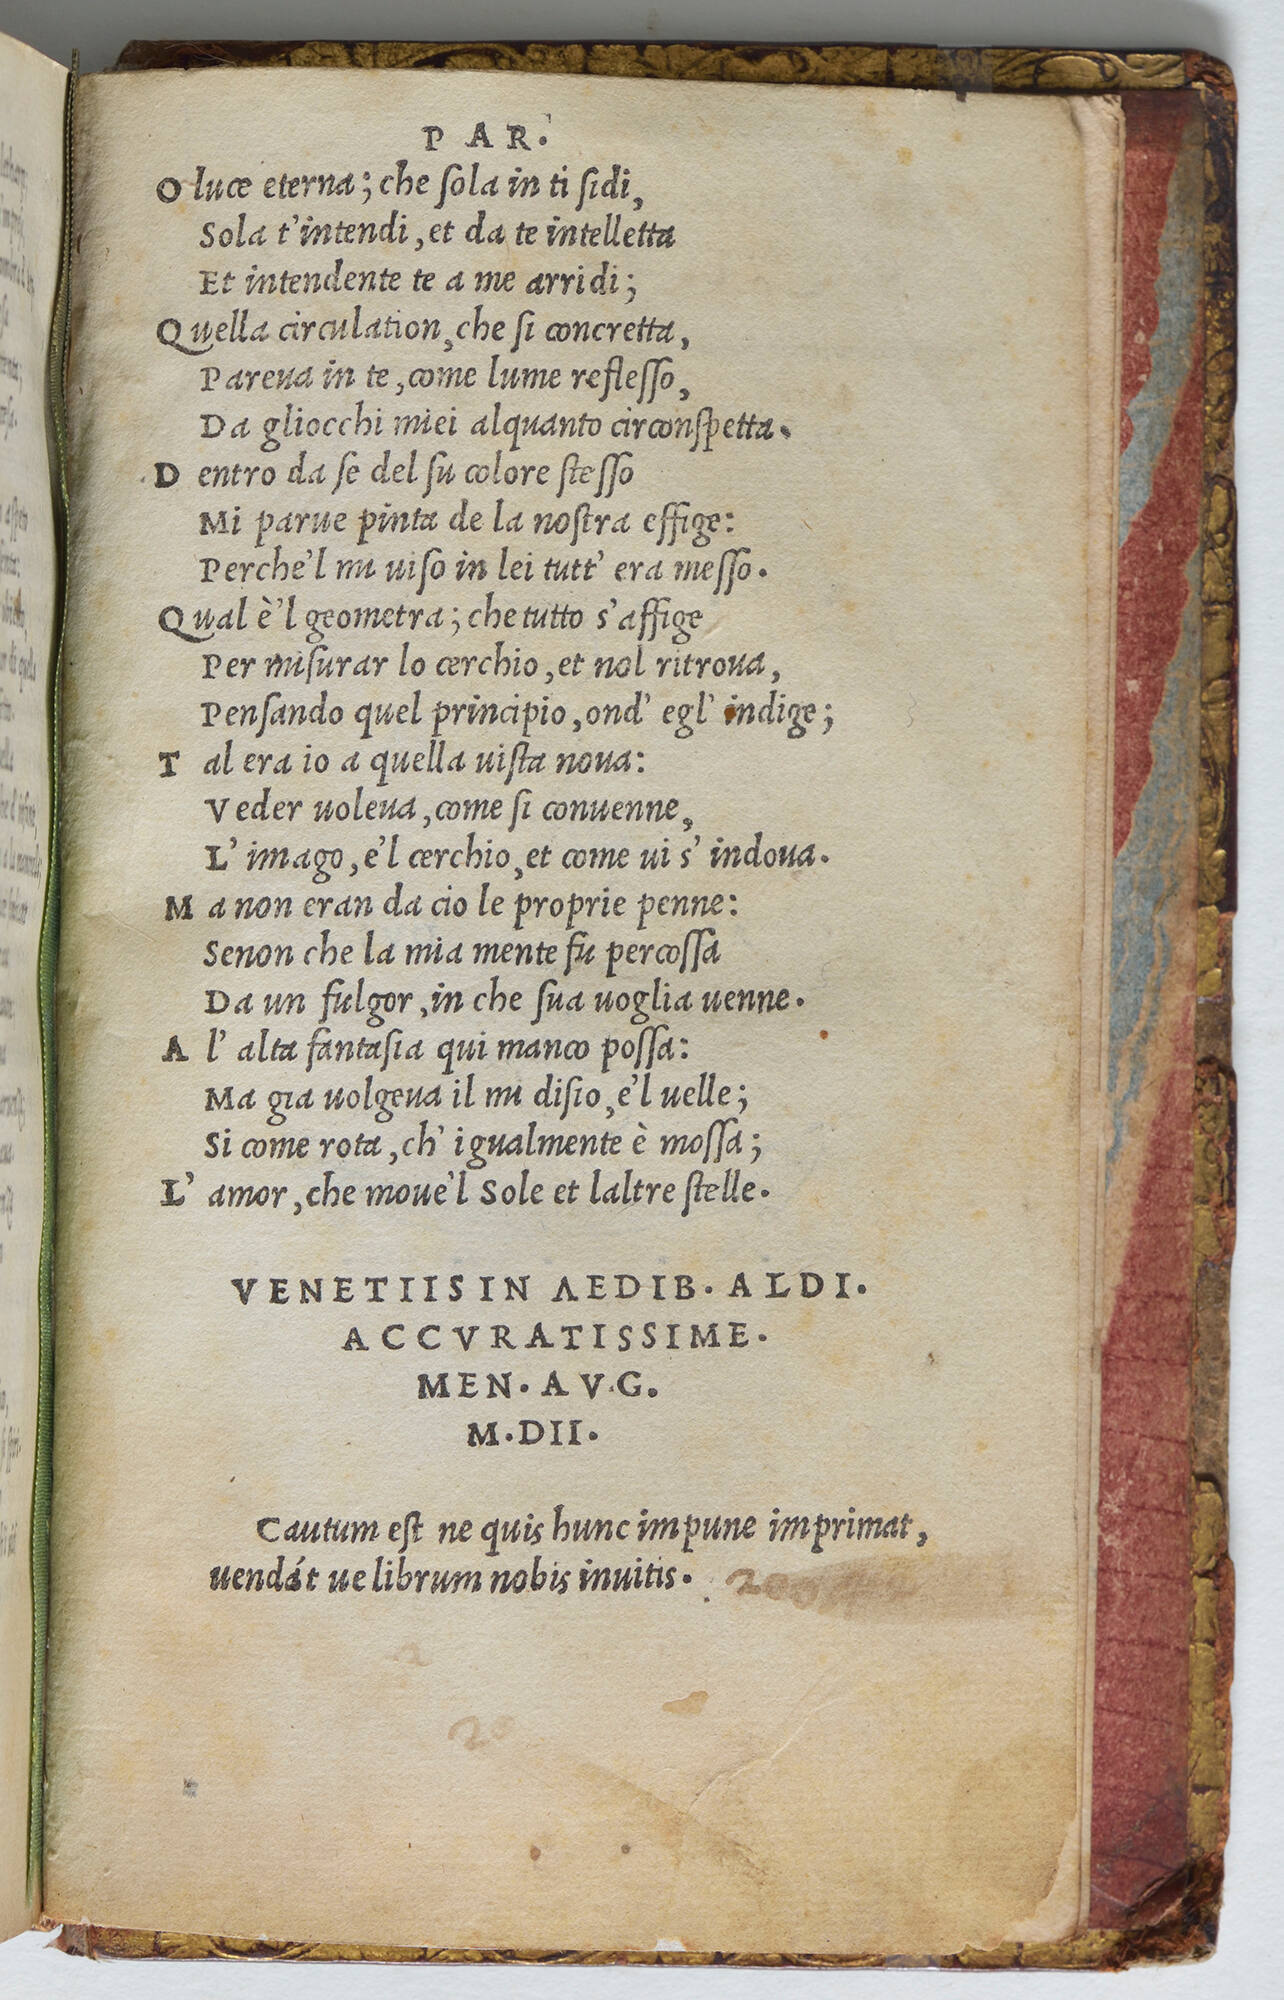 PAR.
O luce eterna; che sola in ti sidi,
Sola t'intendi, et da te intelletta
Et intendente te a me arridi;
Quella circulation, che si concretta,
Pareua in te, come lume reflesso,
Da gliocchi miei alquanto circonspetta.
D entro da se del su colore stesso
Mi parue pinta de la nostra effige:
Perche'l mi uiso in lei tutt' era messo.
Qual è'l geometra; che tutto s'affige
Per misurar lo cerchio, et nol ritroua,
Pensando quel principio, ond' egl' indige;
T al era io a quella uista noua:
Veder uoleua, come si conuenne,
L' imago, e'l cerchio, et come ui s' indoua.
M a non eran da cio le proprie penne:
Senon che la mia mente fu percossa
Da un fulgor, in che sua uoglia uenne.
A l' alta fantasia qui manco possa:
Ma gia uolgeua il mi disio, e'l uelle;
Si come rota, ch' igualmente è mossa;
L' amor, che moue'l Sole et laltre stelle.
VENETIIS IN AEDIB. ALDI.
ACCVRATISSIME.
MEN. AVG.
M.DII.
Cautum est ne quis hunc impune imprimat,
uendát ue librum nobis inuitis.
20